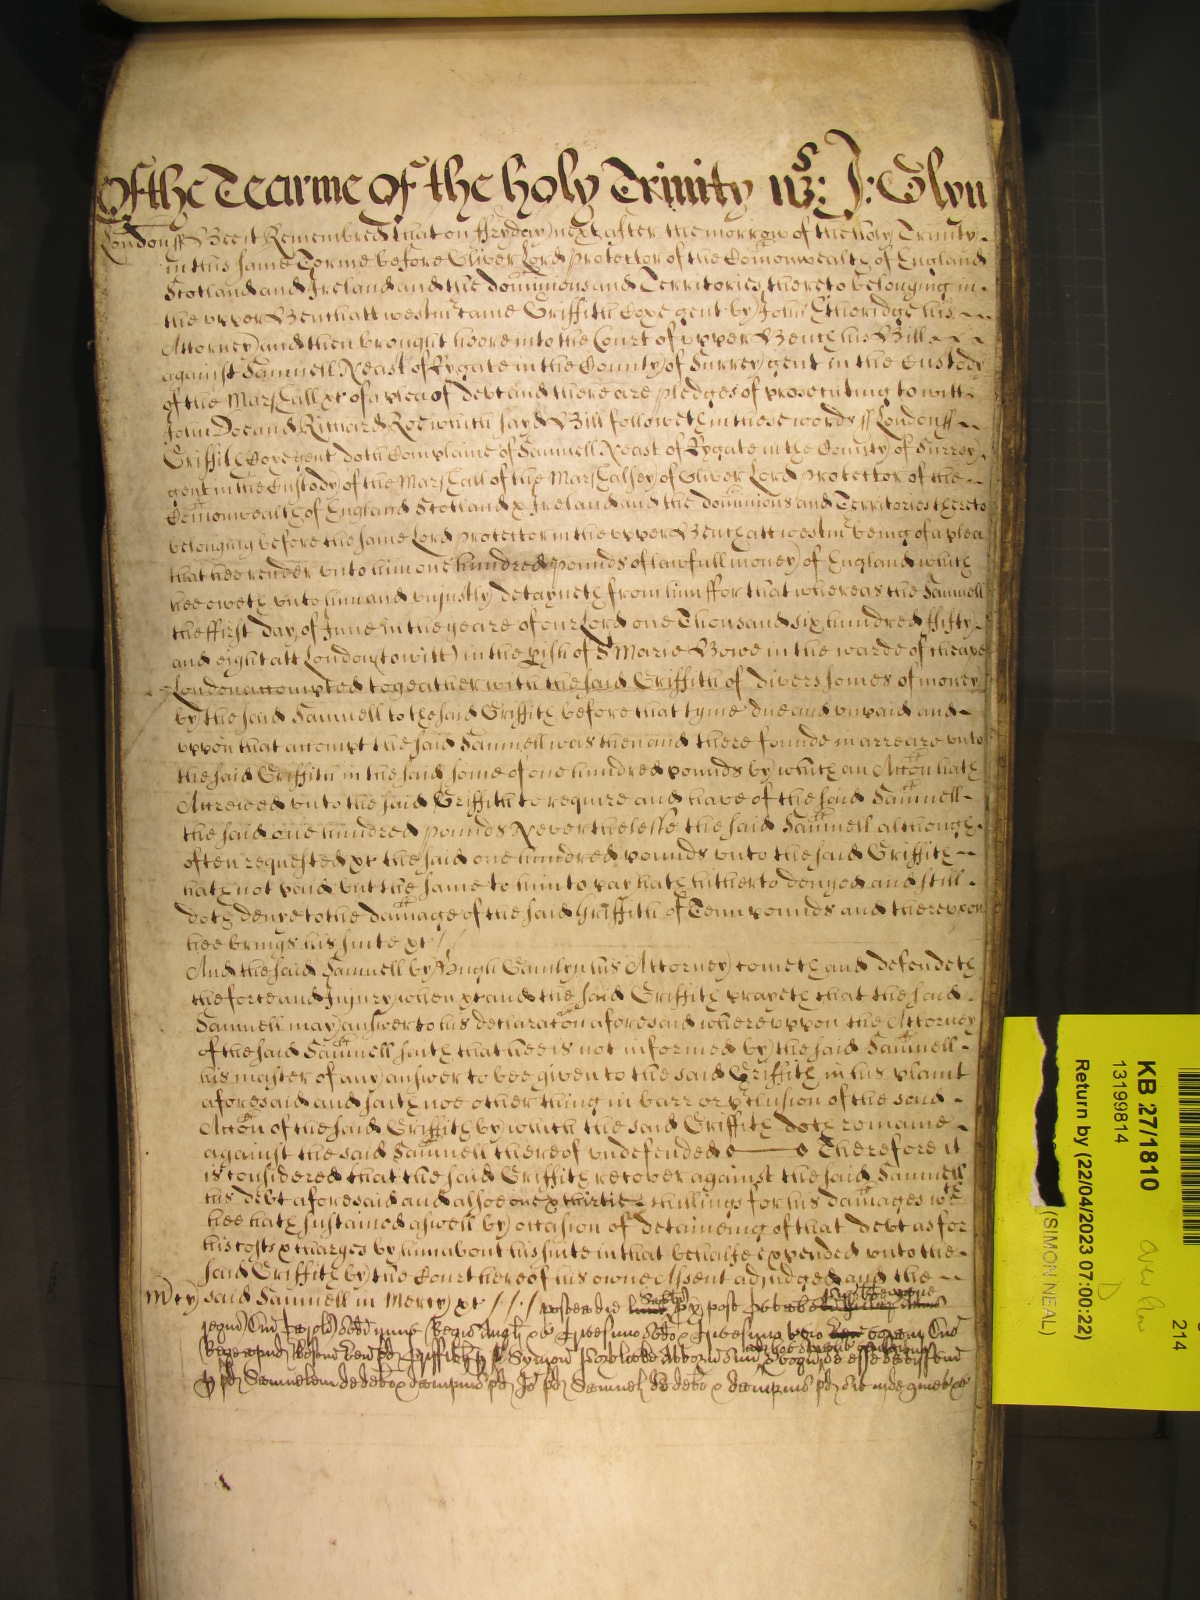 Of the Tearme of the holy Trinity 1658: J: Glyn
London ss Bee it Remembred that on ffryday next after the morrow of the holy Trinity
in this same Terme before Oliver Lord protector of the Comonwealth of England
Scotland and Ireland and the dominions and Territories thereto belonging in
the upper Bench att westm came Griffith Coxe gent by John Etheridge his
Attorney and then brought heere into the Court of upper Bench his Bill
against Samuell Neast of Rygate in the County of Surrey gent in the Custody
of the Marshall &c of a plea of debt and there are pledges of prosecuting to witt
John Doe and Richard Roe which sayd Bill followeth in these words ss London ss
Griffith Coxe gent doth Complaine of Samuell Neast of Rygate in the County of Surrey
gent in the Custody of the Marshall of the Marshalsey of Oliver Lord protector of the
Comonwealth of England Scotland & Ireland and the dominions and Territories thereto
belonging before the same Lord protector in the upper Bench att westm being of a plea
that hee render unto him one hundred pounds of lawfull money of England which
hee oweth unto him and unjustly detayneth from him ffor that whereas the Samuell
the ffirst day of June in the yeare of our Lord one Thousand six hundred ffifty
and eight att London (to witt) in the pish of St Marie Bowe in the warde of Cheape
London accompted togeather with the said Griffith of divers somes of money
by the said Samuell to the said Griffith before that tyme due and unpaid and
uppon that accompt the said Samuell was then and there founde in arreare unto
the said Griffith in the said some of one hundred pounds by which an Accon hath
Accrewed unto the said Griffith to require and have of the said Samuell
the said one hundred pounds Neverthelesse the said Samuell although
often requested &c the said one hundred pounds unto the said Griffith
hath not paid but the same to him to pay hath hitherto denyed and still
doth denye to the damage of the said Griffith of Tenn pounds and thereupon
hee brings his suite &c
And the said Samuell by Hugh Hamlyn his Attorney cometh and defendeth
the force and Injury when &c and the said Griffith prayeth that the said
Samuell may answer to his declaracon aforesaid whereuppon the Attorney
of the said Samuell saith that hee is not informed by the said Samuell
his master of any answer to bee given to the said Griffith in his plaint
aforesaid and saith noe other thing in barr or pclusion of the said
Accon of the said Griffith by which the said Griffith doth remaine
against the said Samuell thereof undefended Therefore it
is considered that the said Griffith recover against the said Samuell
his debt aforesaid and alsoe one & thirtie shillings for his damages wch
hee hath susteined aswell by occasion of detaineing of that debt as for
his costs & charges by him about his suite in that behalfe expended unto the
said Griffith by the Court hereof his owne Assent adjudged and the
Mcy said Samuell in Mercy &c postea die
p pd Samuelem de debo & dampnis pd Io pd Samuel de debo & dampnis pd sit inde quiet &c
KB 27/1810
13199814
Return by (22/04/2023 07:00:22)
(SIMON NEAL)
D
214